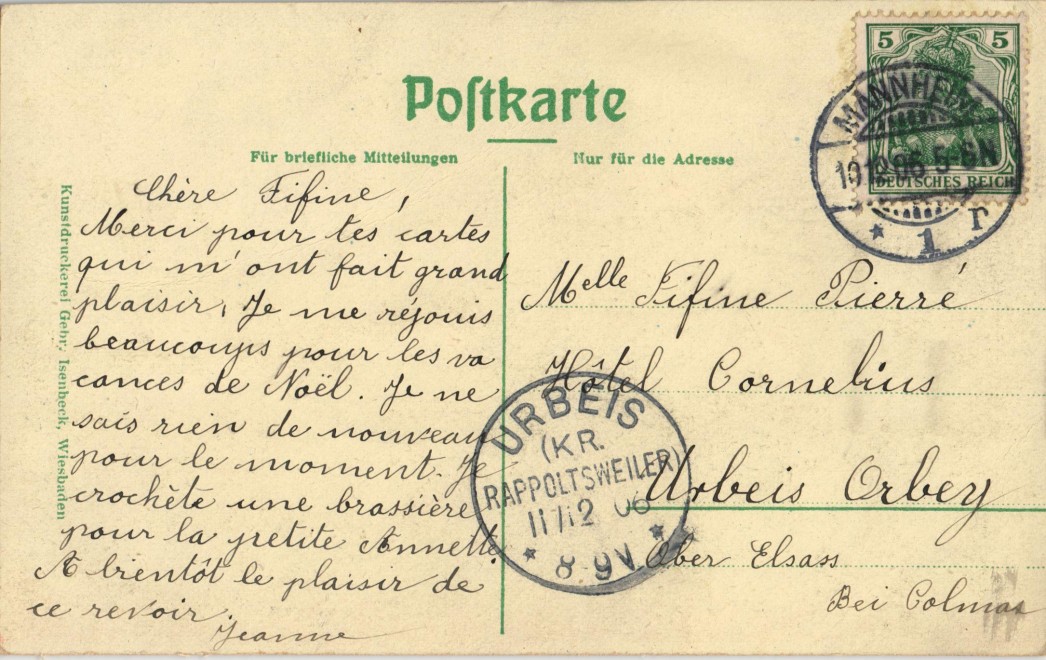 Postkarte
Für briefliche Mitteilungen
Nur für die Adresse
5 5
DEUTSCHES REICH
MANNHEIM
5-6N
* 1 r
Chère Fifine,
Merci pour tes cartes
qui m'ont fait grand
plaisir. Je me réjouis
beaucoups pour les va
cances de Noël. Je ne
sais rien de nouveau
pour le moment. Je
crochète une brassière
pour la petite Annette.
A bientôt le plaisir de
ce revoir
Jeanne
Melle Fifine Pierré
Hôtel Cornelius
Urbeis Orbey
Ober Elsass
Bei Colmar
URBEIS
(KR.
RAPPOLTSWEILER)
11/12 06
* 8-9V. *
Kunstdruckerei Gebr. Isenbeck, Wiesbaden